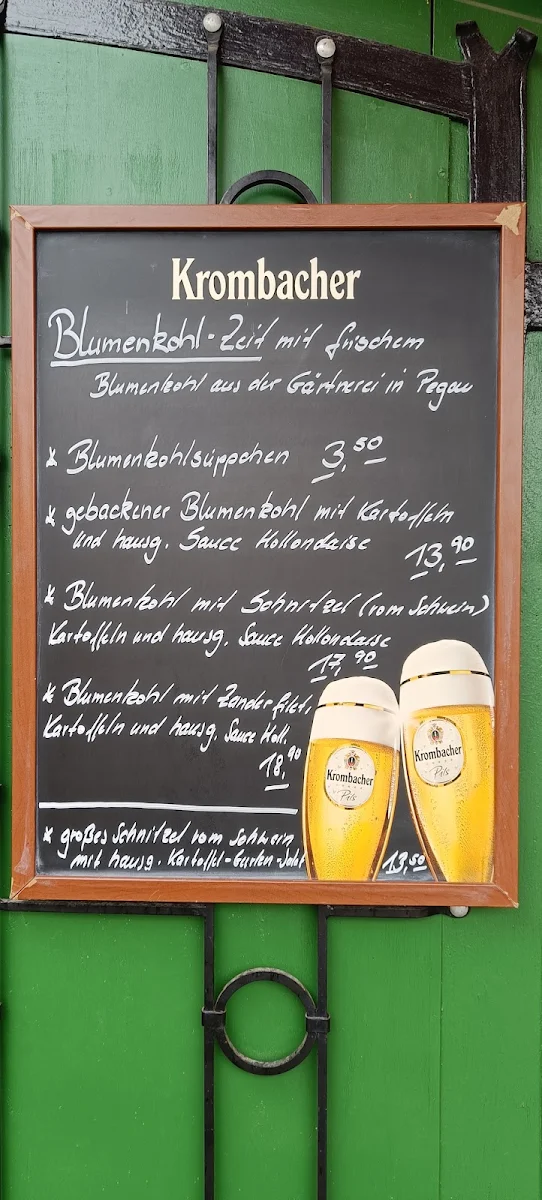 Krombacher
Blumenkohl-Zeit mit frischem
Blumenkohl aus der Gärtnerei in Pegau
* Blumenkohlsüppchen 3,50
* gebackener Blumenkohl mit Kartoffeln
und hausg. Sauce Hollondaise
13,90
* Blumenkohl mit Schnitzel (vom Schwein)
Kartoffeln und hausg. Sauce Hollondaise
17,90
* Blumenkohl mit Zanderfilet,
Kartoffeln und hausg. Sauce Holl.
18,90
* großes Schnitzel vom Schwein
mit hausg. Kartoffel-Gurken-Salat
13,50
Krombacher
Pils
Krombacher
Pils